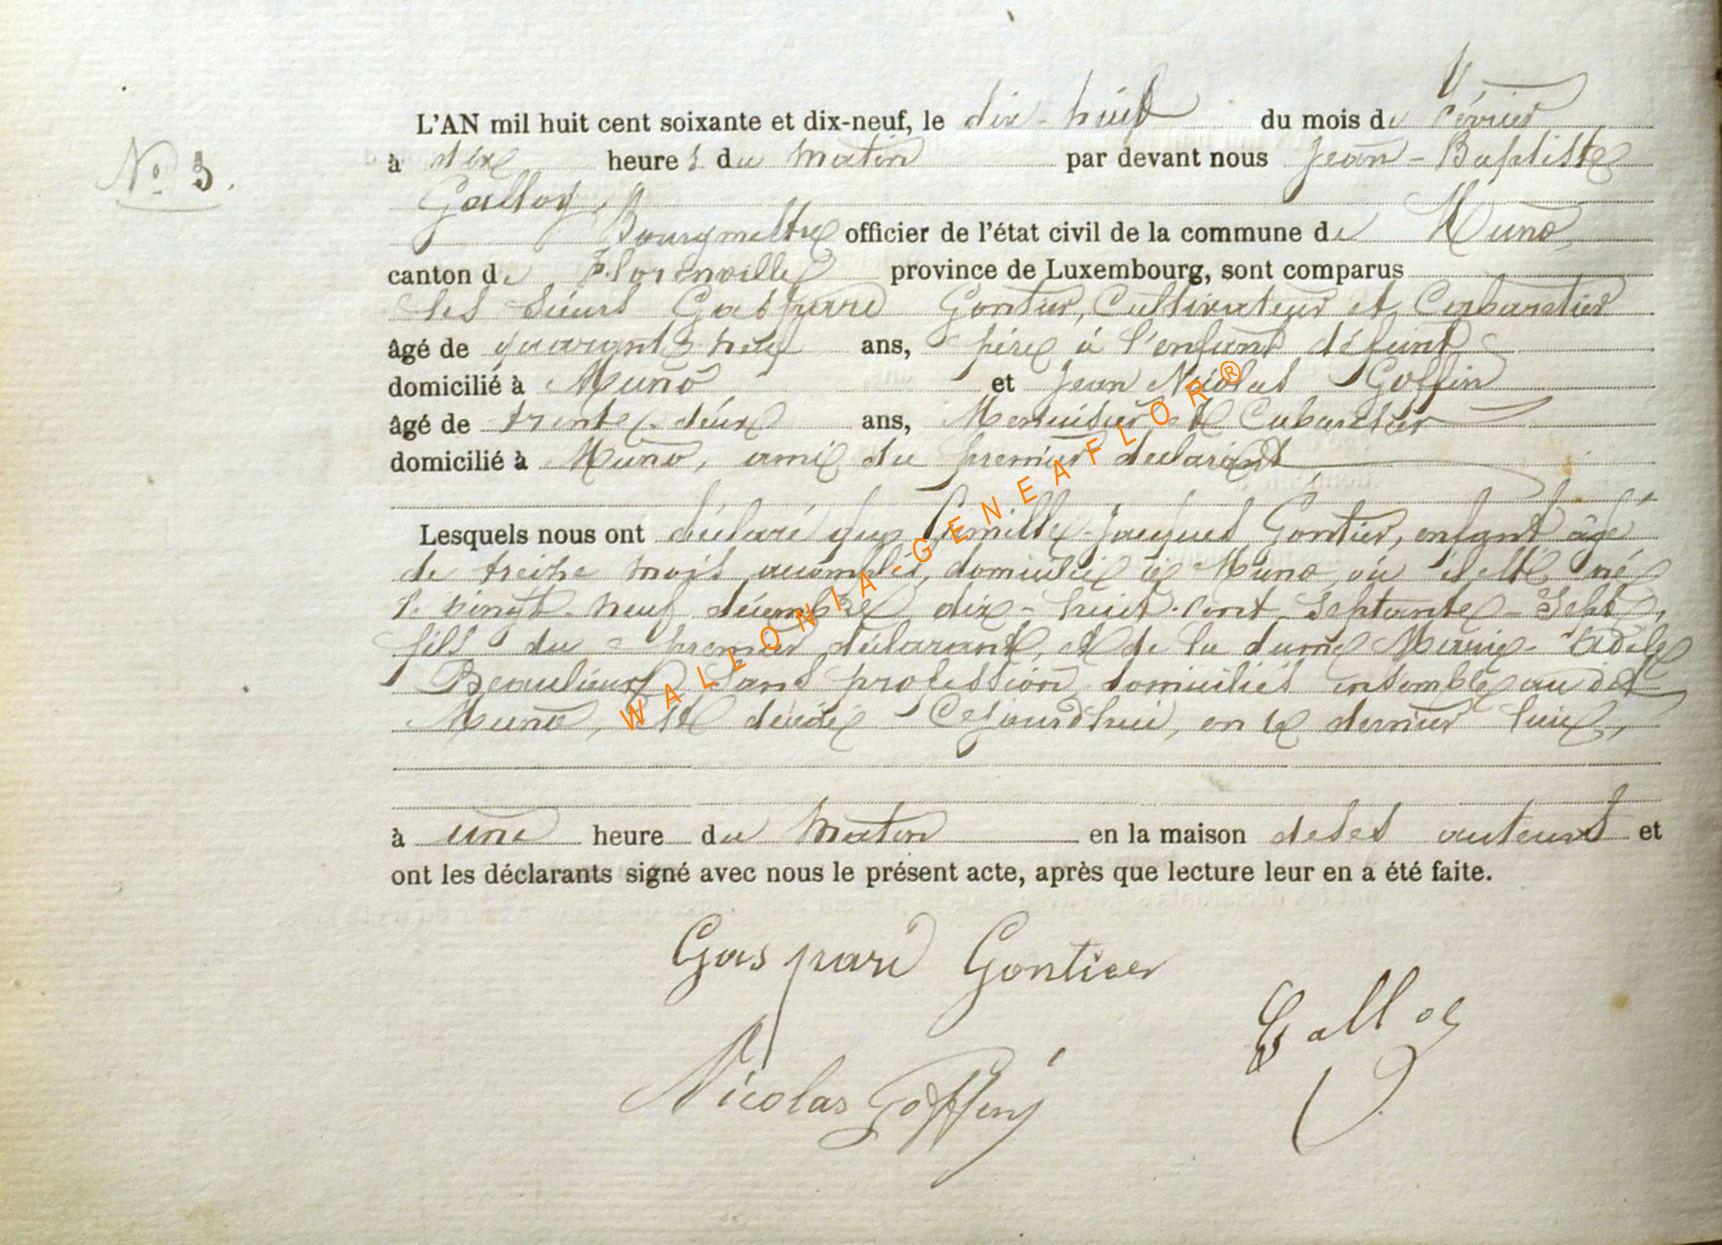 N° 3.
L'AN mil huit cent soixante et dix-neuf, le dix-huit du mois de février
à dix heures du matin par devant nous Jean-Baptiste
Galloy,
Bourgmestre officier de l'état civil de la commune de Muno,
canton de Florenville province de Luxembourg, sont comparus
les sieurs Gaspard Gontier, Cultivateur et Cabaretier
âgé de quarante neuf ans, père à l'enfant défunt
domicilié à Muno et Jean Nicolas Goffin
âgé de trente-deux ans, Menuisier et Cabaretier
domicilié à Muno, ami du premier déclarant
Lesquels nous ont déclaré que Camille-Jacques Gontier, enfant âgé
de treize mois accomplis, domicilié à Muno, où il est né
le vingt-neuf décembre dix-huit-cent-septante-sept,
fils du premier déclarant, et de la dame Marie-Adèle
Beaulieux, sans profession, domiciliés ensemble au dit
Muno, est décédé Cejourd'hui, en ce dernier lieu,
à une heure du matin en la maison de ses auteurs et
ont les déclarants signé avec nous le présent acte, après que lecture leur en a été faite.
Gaspard Gontier
Galloy
Nicolas Goffin
WALLONIA-GENEAFLOR®